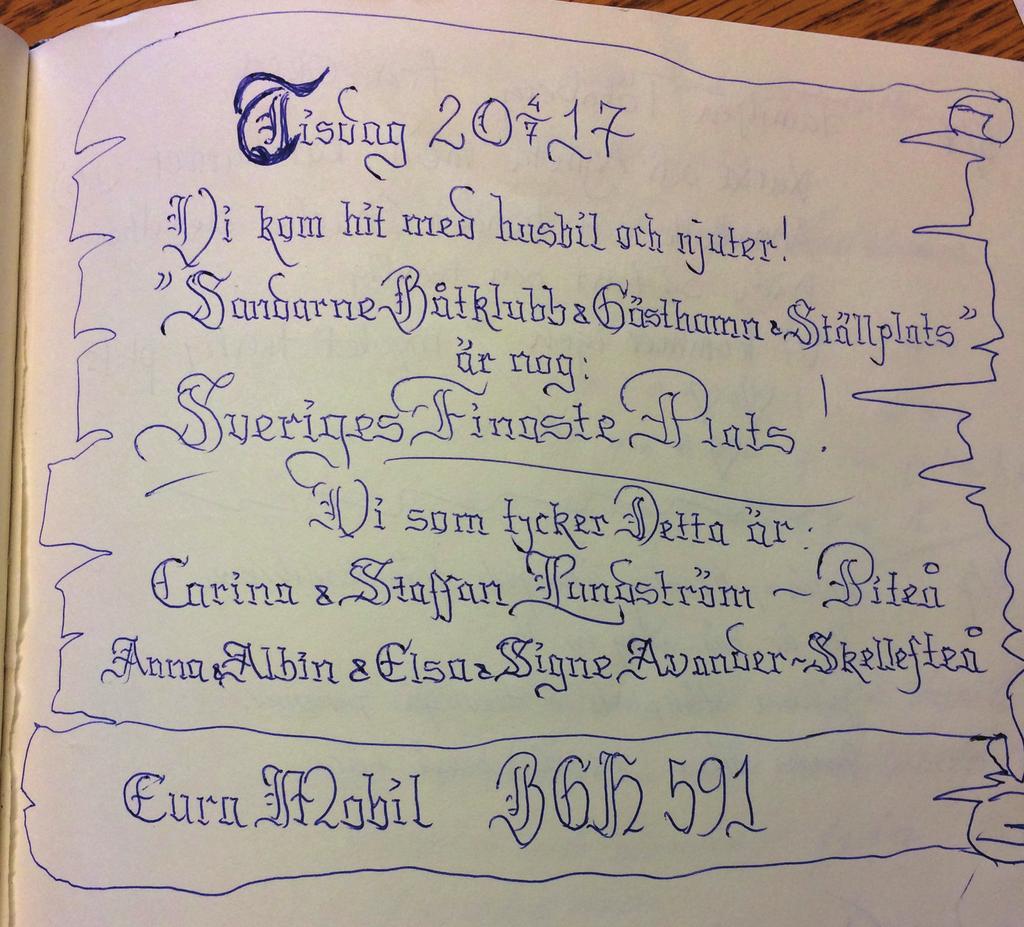 Tisdag 20 4/7 17
Vi kom hit med husbil och njuter!
"Sandarne Båtklubb & Gästhamn & Ställplats"
är nog:
Sveriges Finaste Plats!
Vi som tycker Detta är:
Carina & Staffan Lundström ~ Piteå
Anna & Albin & Elsa & Signe Avander ~ Skellefteå
Eura Mobil BGH 591